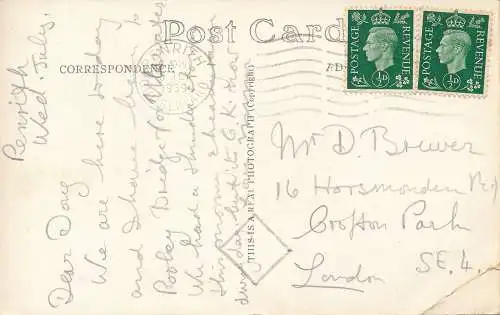 Post Card
CORRESPONDENCE
THIS IS A REAL PHOTOGRAPH (Copyright)
POSTAGE
REVENUE
½D
POSTAGE
REVENUE
½D
PENRITH
1939
Penrith
Wed. July.
Dear Doug
We are here to-day
and I have been to
Pooley Bridge for
We had a thunder
this morning
but its O.K. now
Mr D. Brewer
16 Horsmonden Rd
Crofton Park
London
SE. 4.